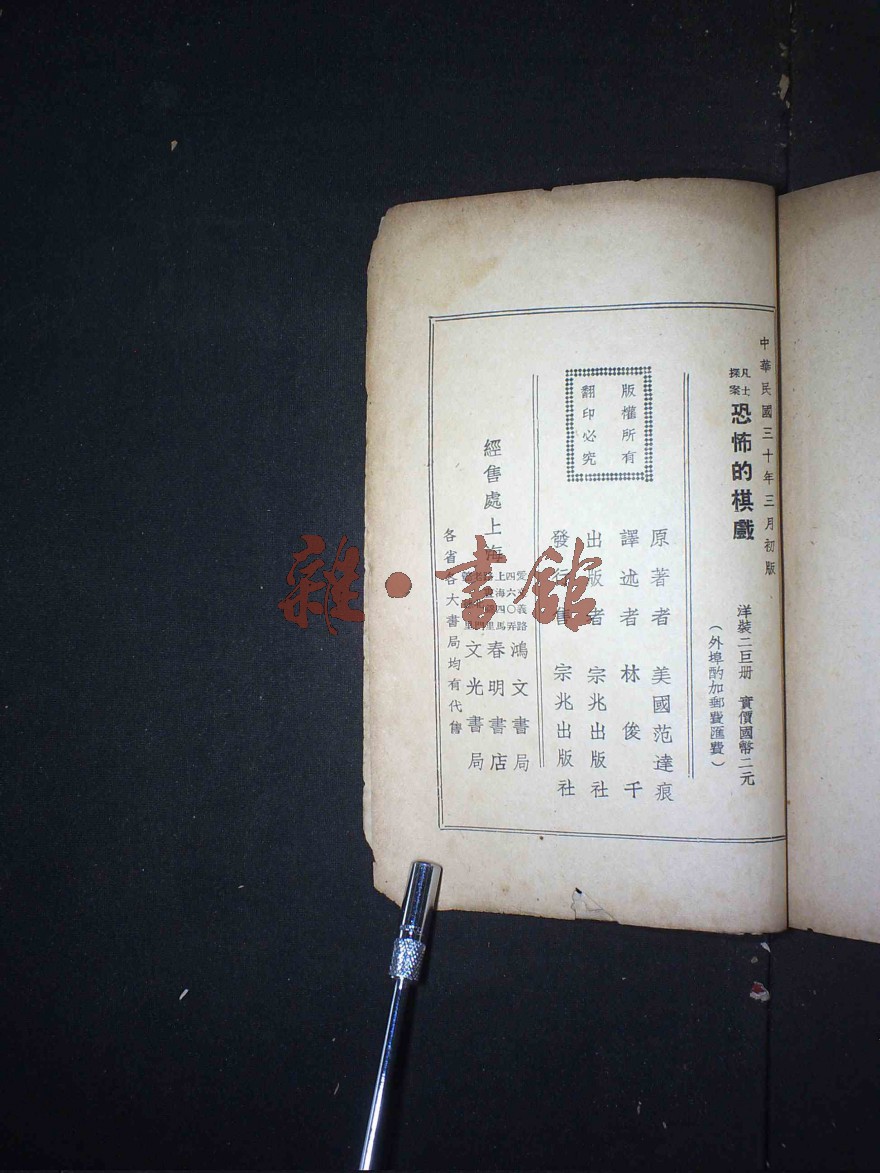 中華民國三十年三月初版
凡士探案
恐怖的棋戲
洋裝二巨册 實價國幣二元
(外埠酌加郵費匯費)
版權所有
翻印必究
原著者 美國范達痕
譯述者 林俊千
出版者 宗兆出版社
發行者 宗兆出版社
經售處 上海
愛義路
四六〇弄
鴻文書局
上海四馬
春明書店
文光書局
各省各大書局均有代售
雜·書館